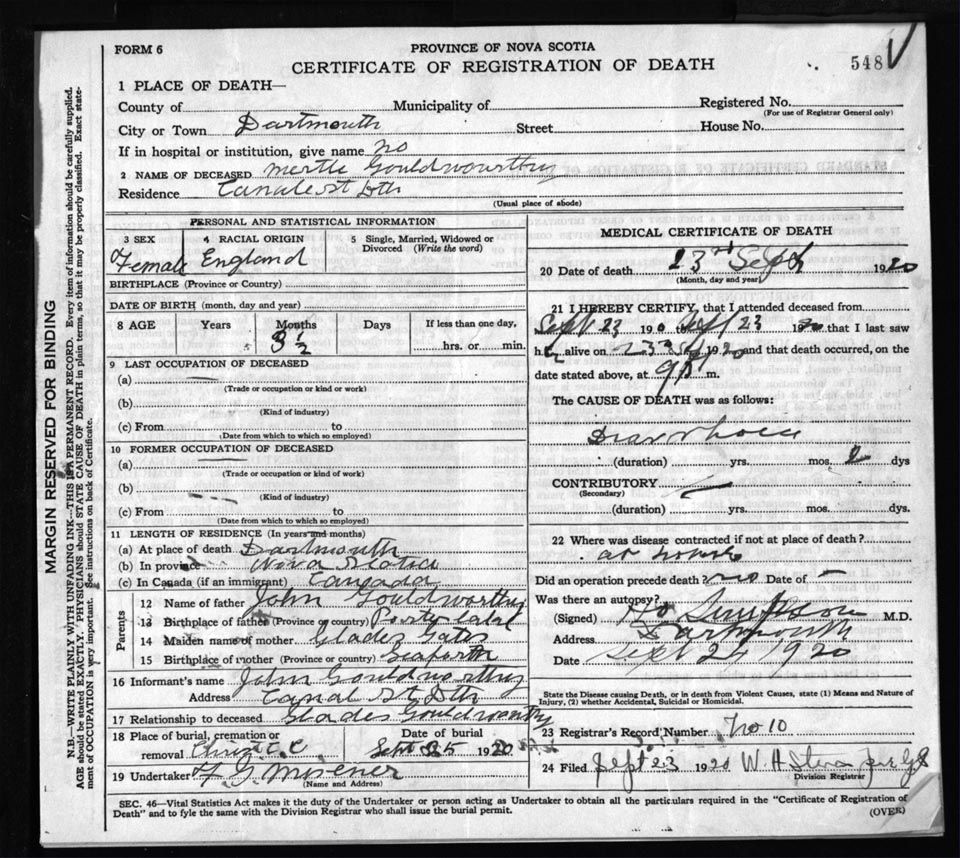 FORM 6
PROVINCE OF NOVA SCOTIA
CERTIFICATE OF REGISTRATION OF DEATH
548
1 PLACE OF DEATH—
County of Municipality of Registered No.
(For use of Registrar General only)
City or Town Dartmouth Street House No.
If in hospital or institution, give name no
2 NAME OF DECEASED Mertle Gouldwourthy
Residence Canal St Dth
(Usual place of abode)
PERSONAL AND STATISTICAL INFORMATION
3 SEX 4 RACIAL ORIGIN 5 Single, Married, Widowed or Divorced (Write the word)
Female England
BIRTHPLACE (Province or Country)
DATE OF BIRTH (month, day and year)
8 AGE Years Months Days If less than one day,
3 1/2 hrs. or min.
9 LAST OCCUPATION OF DECEASED
(a)
(Trade or occupation or kind of work)
(b)
(Kind of industry)
(c) From to
(Date from which to which so employed)
10 FORMER OCCUPATION OF DECEASED
(a)
(Trade or occupation or kind of work)
(b)
(Kind of industry)
(c) From to
(Date from which to which so employed)
11 LENGTH OF RESIDENCE (In years and months)
(a) At place of death Dartmouth
(b) In province Nova Scotia
(c) In Canada (if an immigrant) Canada
Parents
12 Name of father John Gouldworthy
13 Birthplace of father (Province or country)
14 Maiden name of mother Glades Gates
15 Birthplace of mother (Province or country) Seaforth
16 Informant's name John Gouldworthy
Address Canal St Dth
17 Relationship to deceased Glades Gouldworthy
18 Place of burial, cremation or removal Christ C. C Date of burial Sept 25 1920
19 Undertaker F. G. Misener
(Name and Address)
MEDICAL CERTIFICATE OF DEATH
20 Date of death 23rd Sept 1920
(Month, day and year)
21 I HEREBY CERTIFY, that I attended deceased from
Sept 23 190 to Sept 23 1920 that I last saw
h er alive on 23 Sept 1920 and that death occurred, on the
date stated above, at 9 P m.
The CAUSE OF DEATH was as follows:
Diarrhoea
(duration) yrs. mos. 2 dys
CONTRIBUTORY
(Secondary)
(duration) yrs. mos. dys.
22 Where was disease contracted if not at place of death?
at home
Did an operation precede death? no Date of —
Was there an autopsy?
(Signed) M.D.
Address Dartmouth
Date Sept 24 1920
State the Disease causing Death, or in death from Violent Causes, state (1) Means and Nature of
Injury, (2) whether Accidental, Suicidal or Homicidal.
23 Registrar's Record Number No 10
24 Filed Sept 23 1920 W. H.
Division Registrar
SEC. 46—Vital Statistics Act makes it the duty of the Undertaker or person acting as Undertaker to obtain all the particulars required in the "Certificate of Registration of
Death" and to fyle the same with the Division Registrar who shall issue the burial permit.
(OVER)
MARGIN RESERVED FOR BINDING
N.B.—WRITE PLAINLY WITH UNFADING INK—THIS IS A PERMANENT RECORD. Every item of information should be carefully supplied.
AGE should be stated EXACTLY. PHYSICIANS should STATE CAUSE OF DEATH in plain terms, so that it may be properly classified. Exact state-
ment of OCCUPATION is very important. See instructions on back of Certificate.